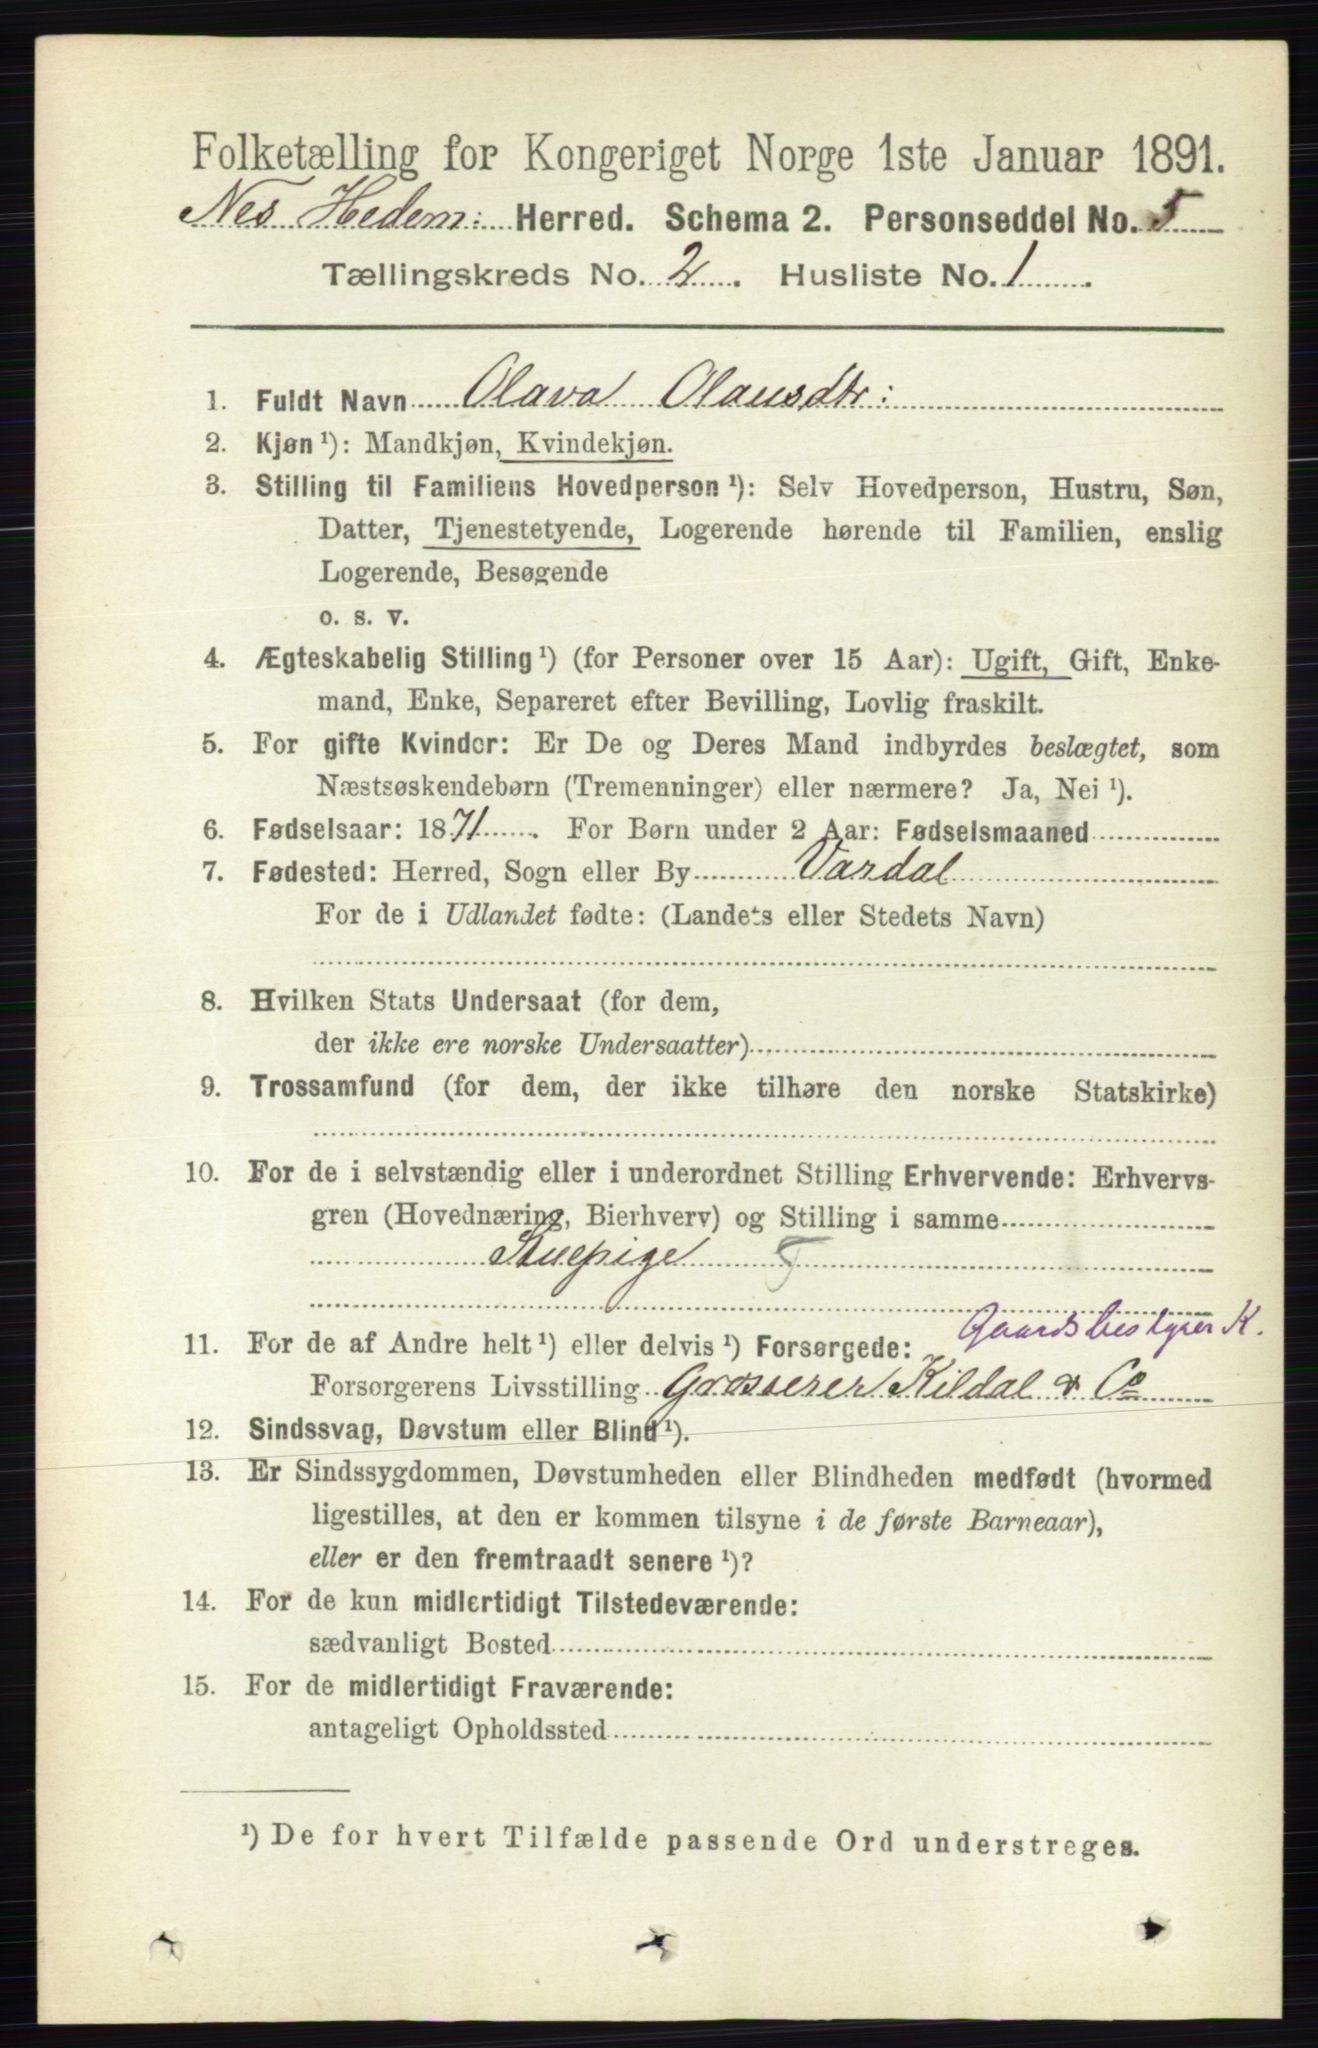 Folketælling for Kongeriget Norge 1ste Januar 1891.
Nes Hedem: Herred. Schema 2. Personseddel No. 5
Tællingskreds No. 2. Husliste No. 1.
1. Fuldt Navn Olava Olausdtr:
2. Kjøn ¹): Mandkjøn, Kvindekjøn.
3. Stilling til Familiens Hovedperson ¹): Selv Hovedperson, Hustru, Søn,
Datter, Tjenestetyende, Logerende hørende til Familien, enslig
Logerende, Besøgende
o. s. v.
4. Ægteskabelig Stilling ¹) (for Personer over 15 Aar): Ugift, Gift, Enke-
mand, Enke, Separeret efter Bevilling, Lovlig fraskilt.
5. For gifte Kvinder: Er De og Deres Mand indbyrdes beslægtet, som
Næstsøskendebørn (Tremenninger) eller nærmere? Ja, Nei ¹).
6. Fødselsaar: 1871. For Børn under 2 Aar: Fødselsmaaned
7. Fødested: Herred, Sogn eller By Vardal
For de i Udlandet fødte: (Landets eller Stedets Navn)
8. Hvilken Stats Undersaat (for dem,
der ikke ere norske Undersaatter)
9. Trossamfund (for dem, der ikke tilhøre den norske Statskirke)
10. For de i selvstændig eller i underordnet Stilling Erhvervende: Erhvervs-
gren (Hovednæring, Bierhverv) og Stilling i samme
Stuepige T
Gaardsbestyrer K.
11. For de af Andre helt ¹) eller delvis ¹) Forsørgede:
Forsørgerens Livsstilling Grosserer Kildal & Co
12. Sindssvag, Døvstum eller Blind ¹).
13. Er Sindssygdommen, Døvstumheden eller Blindheden medfødt (hvormed
ligestilles, at den er kommen tilsyne i de første Barneaar),
eller er den fremtraadt senere ¹)?
14. For de kun midlertidigt Tilstedeværende:
sædvanligt Bosted
15. For de midlertidigt Fraværende:
antageligt Opholdssted
¹) De for hvert Tilfælde passende Ord understreges.